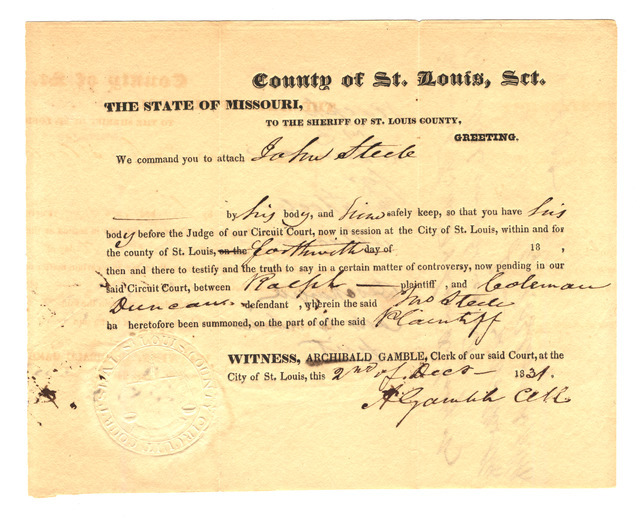 County of St. Louis, Sct.
THE STATE OF MISSOURI,
TO THE SHERIFF OF ST. LOUIS COUNTY,
GREETING.
We command you to attach John Steele
by his body, and him safely keep, so that you have his
body before the Judge of our Circuit Court, now in session at the City of St. Louis, within and for
the county of St. Louis, on the forthwith day of 18 ,
then and there to testify and the truth to say in a certain matter of controversy, now pending in our
said Circuit Court, between Ralph plaintiff , and Coleman
Duncan defendant , wherein the said Jno Steele
ha heretofore been summoned, on the part of of the said Plaintiff
WITNESS, ARCHIBALD GAMBLE, Clerk of our said Court, at the
City of St. Louis, this 2nd of Decr 1831.
A Gamble Clk